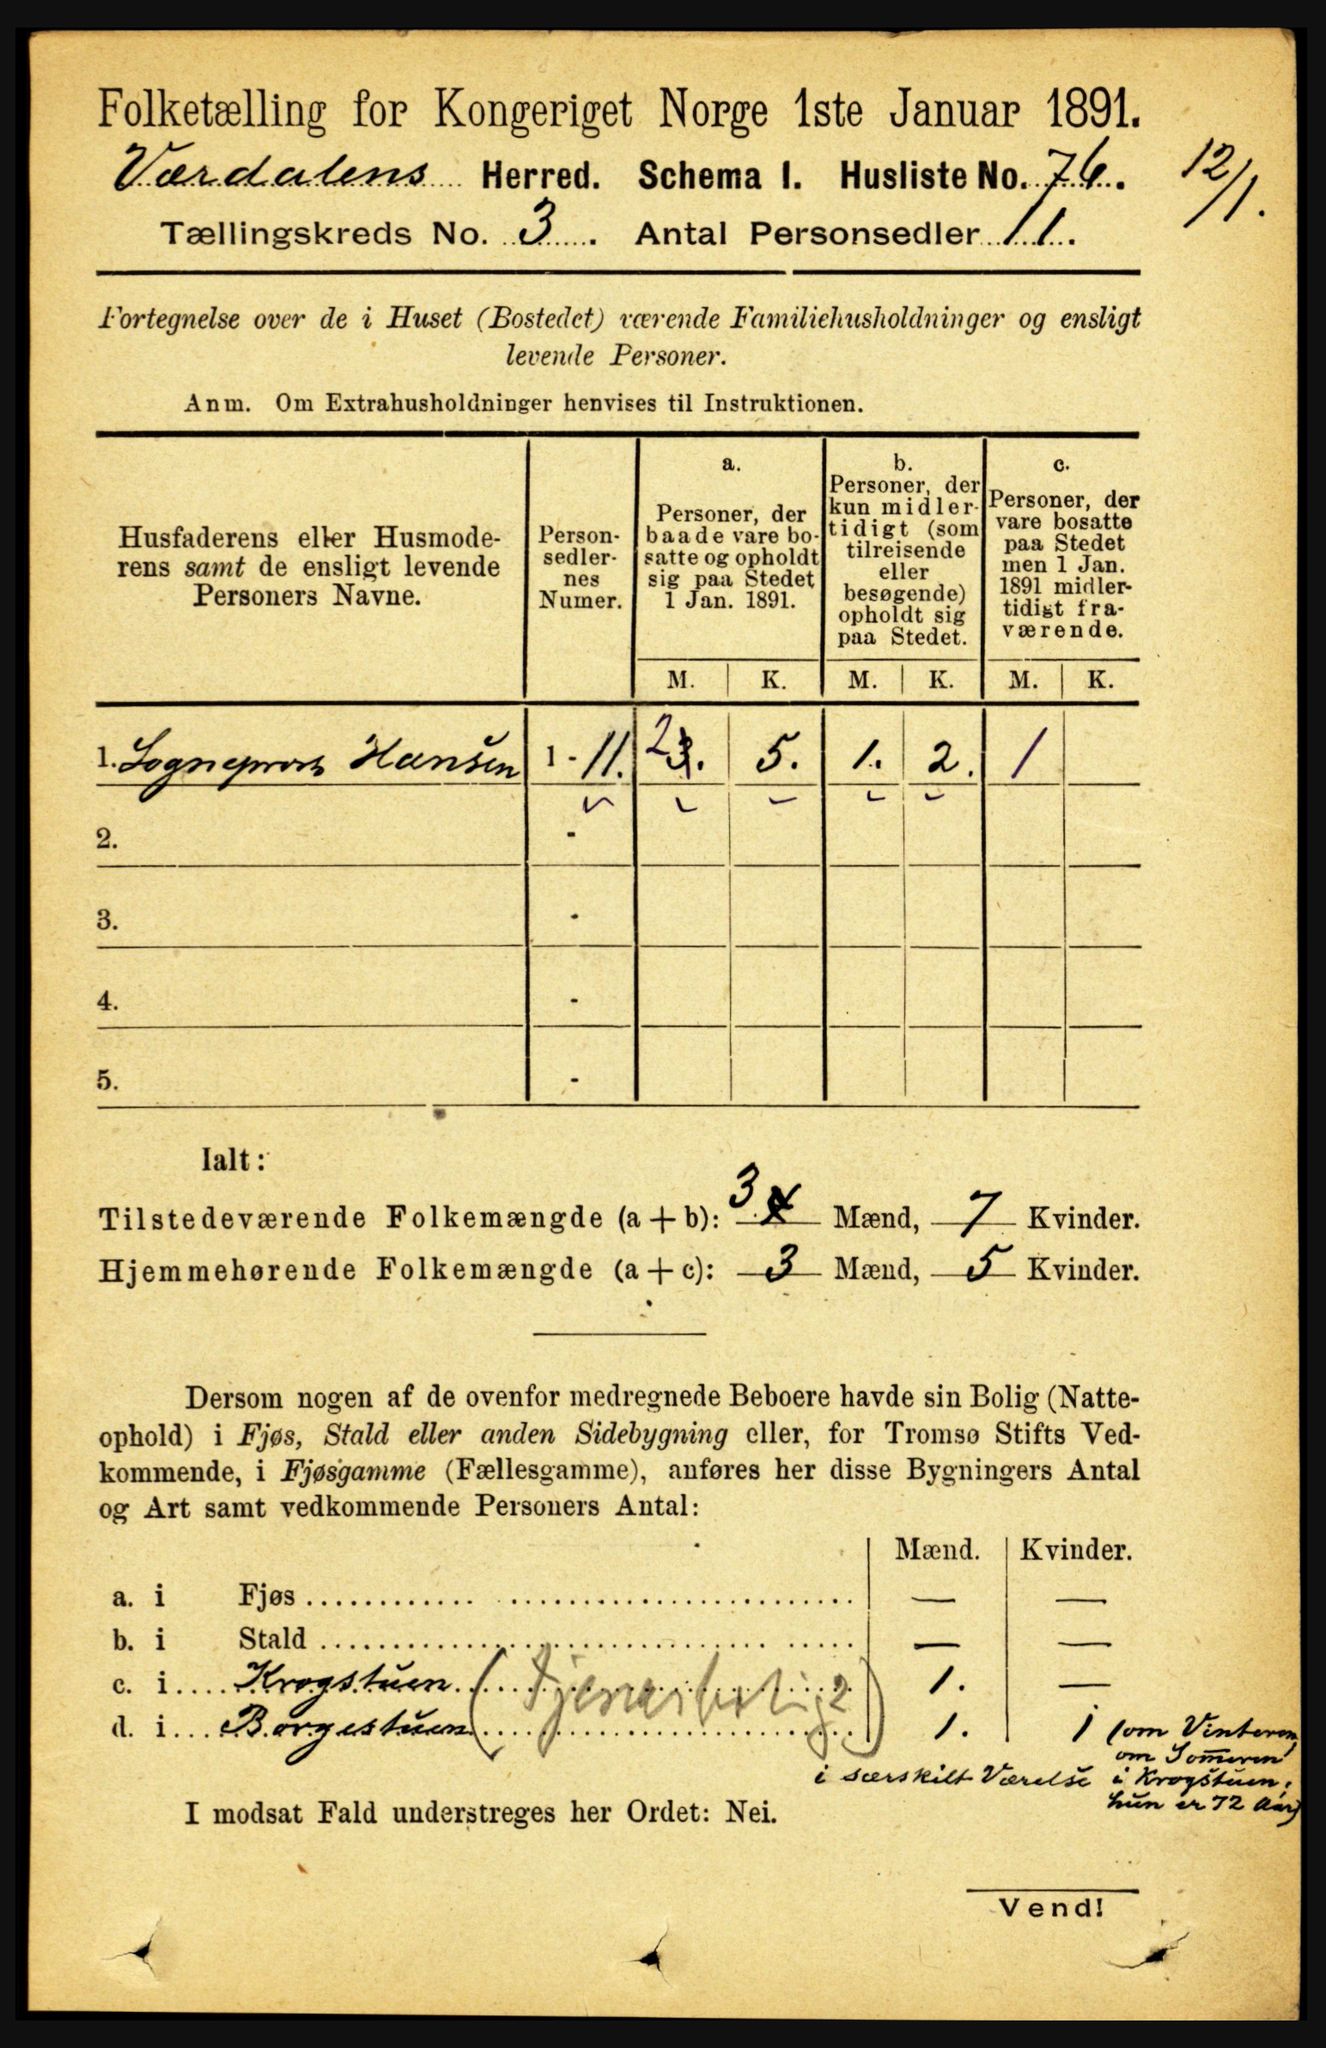 Folketælling for Kongeriget Norge 1ste Januar 1891.
Værdalens Herred. Schema I. Husliste No. 76.
12/1.
Tællingskreds No. 3. Antal Personsedler 11.
Fortegnelse over de i Huset (Bostedet) værende Familiehusholdninger og ensligt
levende Personer.
Anm. Om Extrahusholdninger henvises til Instruktionen.
Husfaderens eller Husmode-
rens samt de ensligt levende
Personers Navne.
Person-
sedler-
nes
Numer.
a.
Personer, der
baade vare bo-
satte og opholdt
sig paa Stedet
1 Jan. 1891.
b.
Personer, der
kun midler-
tidigt (som
tilreisende
eller
besøgende)
opholdt sig
paa Stedet.
c.
Personer, der
vare bosatte
paa Stedet
men 1 Jan.
1891 midler-
tidigt fra-
værende.
M. K. M. K. M. K.
1. Sogneprest Hansen 1 - 11. 2 3. 5. 1. 2. 1
2. -
3. -
4. -
5. -
Ialt:
Tilstedeværende Folkemængde (a + b): 3 4 Mænd, 7 Kvinder.
Hjemmehørende Folkemængde (a + c): 3 Mænd, 5 Kvinder.
Dersom nogen af de ovenfor medregnede Beboere havde sin Bolig (Natte-
ophold) i Fjøs, Stald eller anden Sidebygning eller, for Tromsø Stifts Ved-
kommende, i Fjøsgamme (Fællesgamme), anføres her disse Bygningers Antal
og Art samt vedkommende Personers Antal:
Mænd. Kvinder.
a. i Fjøs — —
b. i Stald — —
c. i Krogstuen (Tjenerbolig) 1. —
d. i Borgestuen 1. 1 (om Vinteren,
om Sommeren
i særskilt Værelse i Krogstuen;
hun er 72 Aar)
I modsat Fald understreges her Ordet: Nei.
Vend!